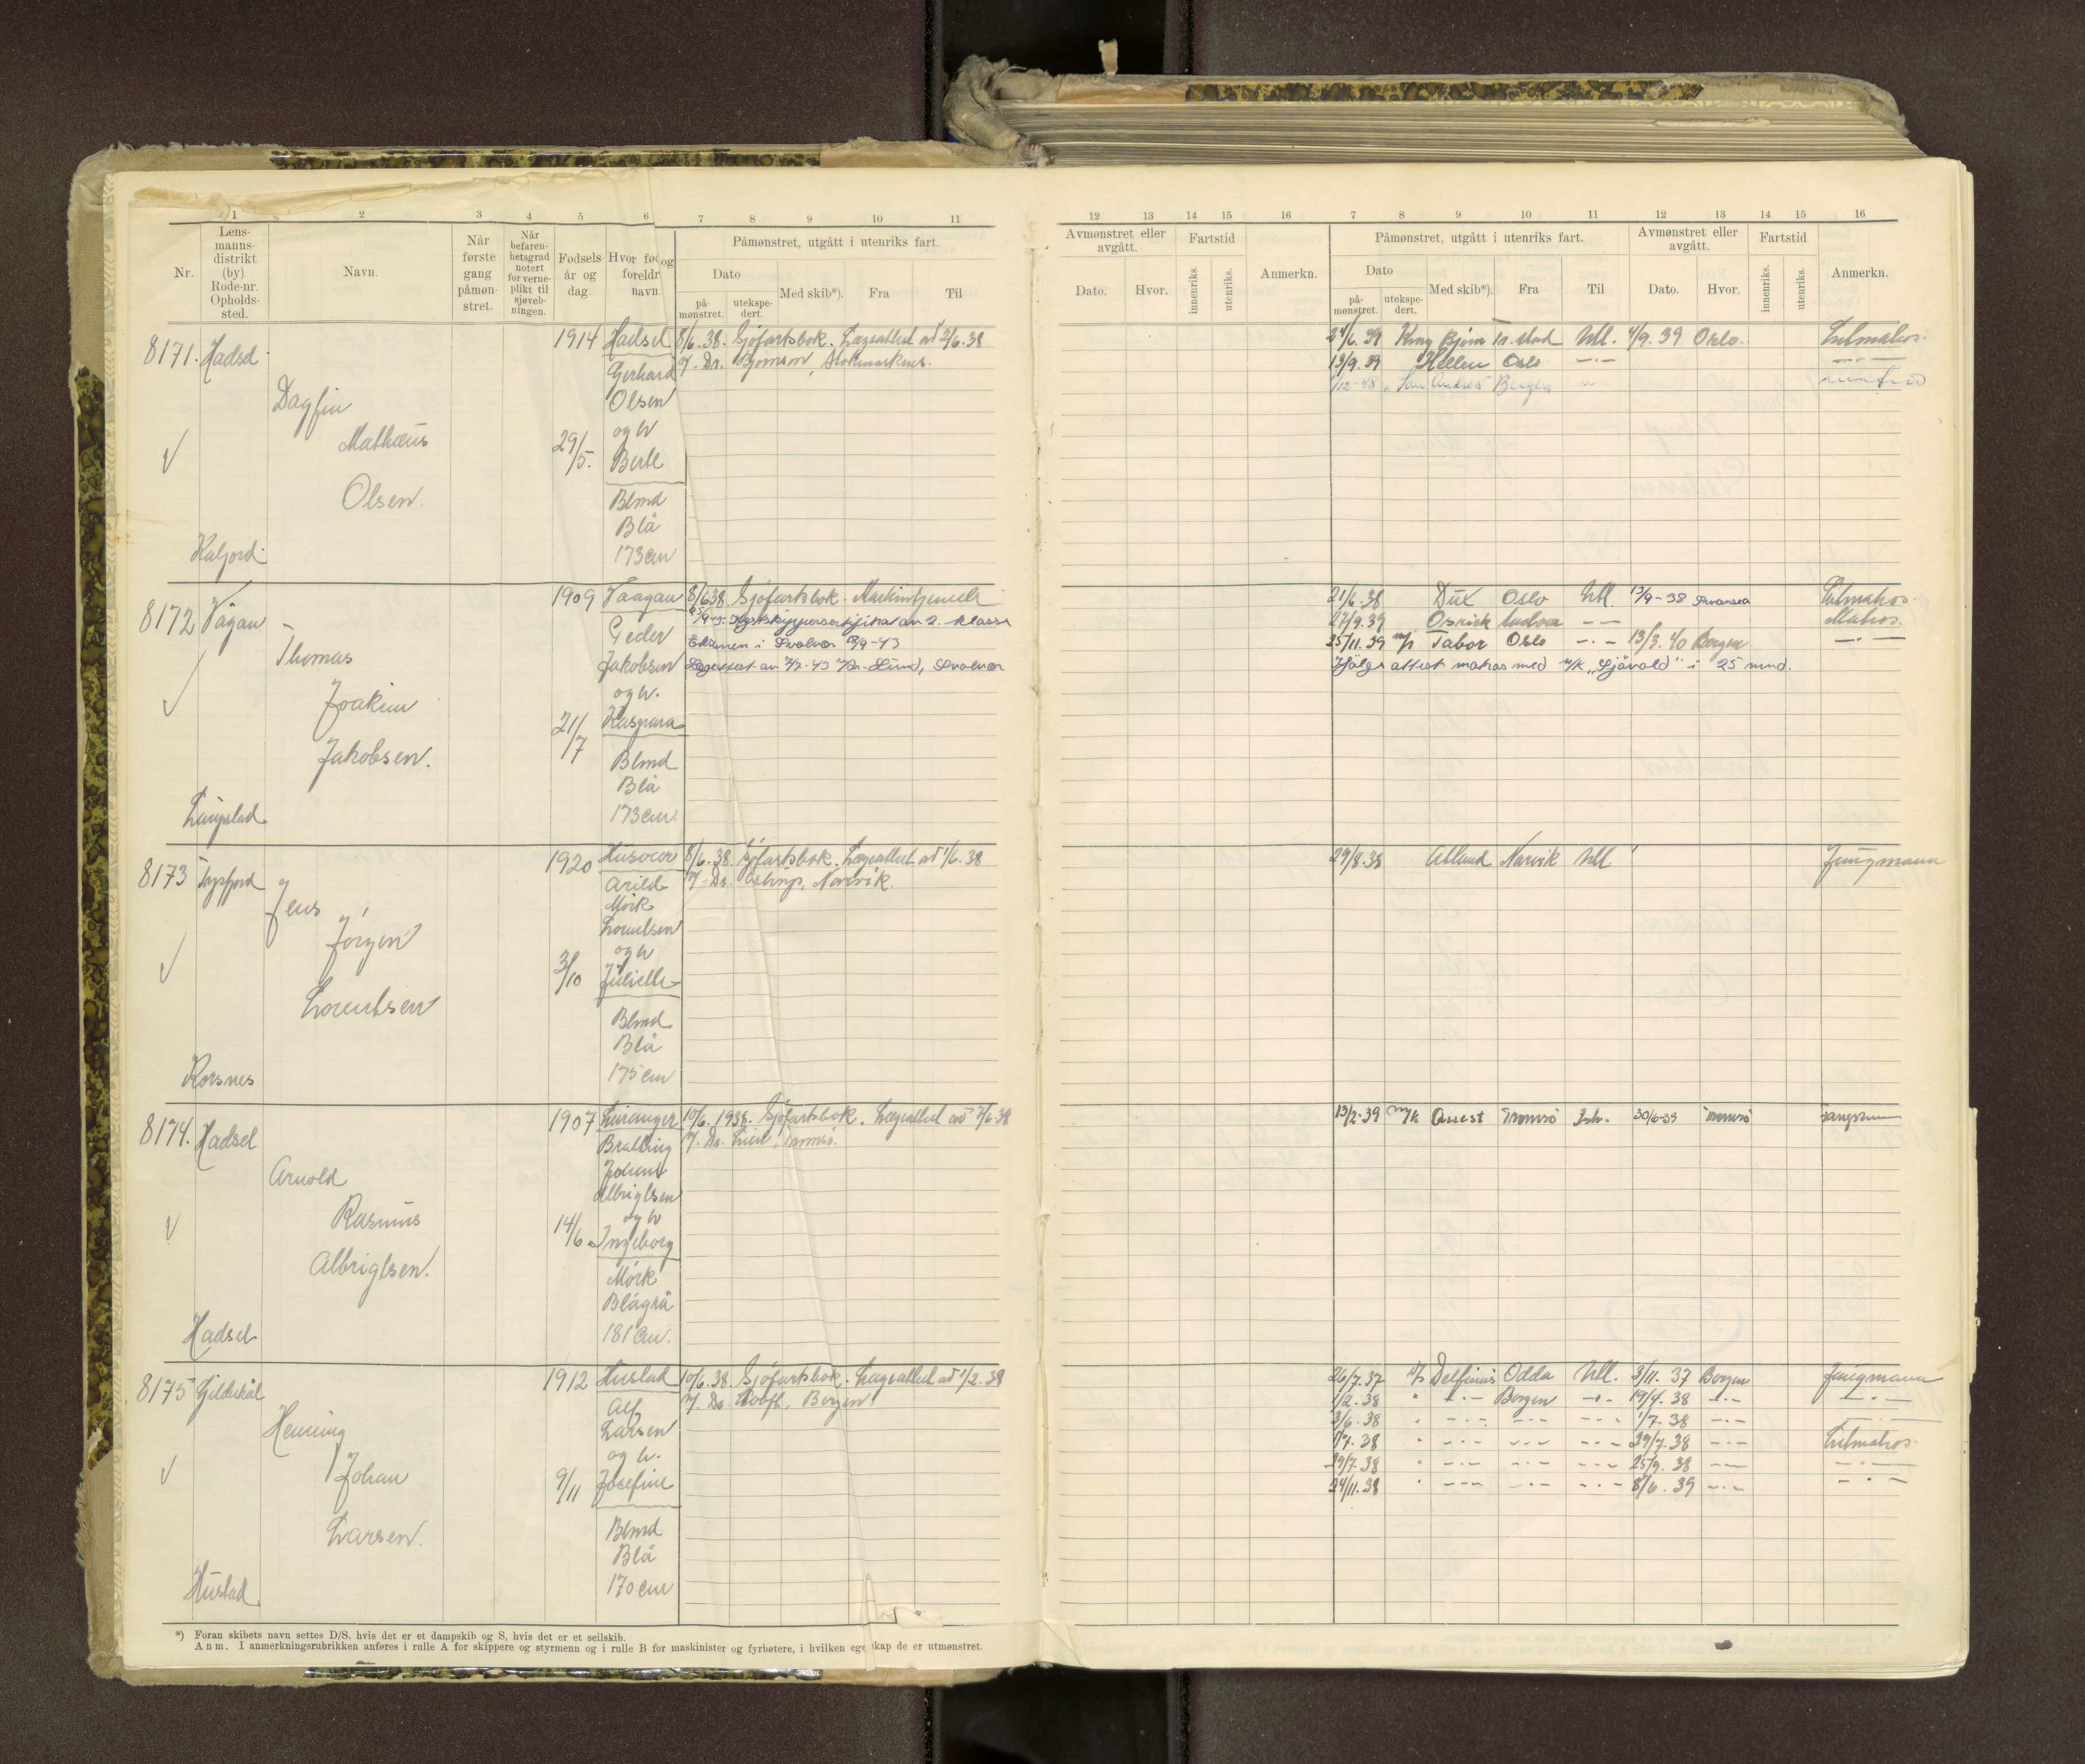 1 2 3 4 5 6 7 8 9 10 11
Nr.
Lens-
manns-
distrikt
(by).
Rode-nr.
Opholds-
sted.
Navn.
Når
første
gang
påmøn-
stret.
Når
befaren-
hetsgrad
notert
for verne-
plikt til
sjøveb-
ningen.
Fødsels
år og
dag
Hvor fød og
foreldr
navn.
Påmønstret, utgått i utenriks fart.
Dato
på-
mønstret.
utekspe-
dert.
Med skib*).
Fra
Til
8171. Hadsel
Dagfin
Mathæus
Olsen.
Kaljord
1914
29/5.
Hadsel
Gerhard
Olsen
og h
Berle
Blmd
Blå
173 cm
8/6.38. Sjøfartsbok. Lægeattest av 2/6.38
v. Dr. Bjørnson, Stokmarknes.
8172 Vågan
Thomas
Joakim
Jakobsen.
1909
21/7
Vaagan
Peder
Jakobsen
og h.
Kaspara
Blmd
Blå
173 cm.
8/6 38. Sjøfartsbok.
Kystskippersertifikat av 2. klasse
Eksamen i Svolvær 18/9-43
Legeattest av 3/7-43 v/Dr. Lund, Svolvær
8173 Tysfjord
Jens
Jørgen
Lorentsen
Korsnes
1920
3/10
Husvær
Arild
Mørk
Lorentsen
og h
Julielle
Blmd
Blå
175 cm
8/6.38. Sjøfartsbok. Lægeattest av 1/6.38
v. Dr. Astrup, Narvik.
8174. Hadsel
Arnold
Rasmus
Albrigtsen.
Hadsel
1907
14/6
Johan
Albrigtsen
og h
Ingeborg
Mørk
Blågrå
181 cm.
10/6.1938. Sjøfartsbok. Lægeattest av 7/6.38
v. Dr. Lied, Tromsø.
8175 Gildeskål
Henning
Johan
Larsen.
Hustad
1912
9/11
Hustad
Alf
Larsen
og h.
Josefine
Blmd
Blå
170 cm
10/6.38. Sjøfartsbok. Lægeattest av 1/2.38
v. Dr. Bergen
*) Foran skibets navn settes D/S, hvis det er et dampskib og S, hvis det er et seilskib.
Anm. I anmerkningsrubrikken anføres i rulle A for skippere og styrmenn og i rulle B for maskinister og fyrbøtere, i hvilken ege skap de er utmønstret.
12 13 14 15 16 7 8 9 10 11 12 13 14 15 16
Avmønstret eller
avgått.
Dato.
Hvor.
Fartstid
innenriks.
utenriks.
Anmerkn.
Påmønstret, utgått i utenriks fart.
Dato
på-
mønstret.
utekspe-
dert.
Med skib*).
Fra
Til
Avmønstret eller
avgått.
Dato.
Hvor.
Fartstid
innenriks.
utenriks.
Anmerkn.
24/6.39 King Bjørn Fr.stad Utl. 4/9.39 Oslo. Letmatros.
13/9.39 Hellen Oslo —·— —·—
"San Andres" Bergen "
21/6.38 Dux Oslo Utl. 13/9-38 Swansea Letmatros.
27/9.39 — — Matros.
25/11.39 m/s Tabor Oslo —·— 13/3.40 Bergen —·—
Ifølge attest matros med m/k "Sjåvold" i 25 mnd.
29/8.38 Narvik Utl. Jungmann
13/2-39 m/k Quest Tromsø Ish. 30/6-39 Tromsø
26/7.37 Delfinus Odda Utl. 3/11.37 Bergen Jungmann
1/2.38 " —·— Bergen —·— 19/4.38 —·— —·—
3/6.38 " —·— —·— —·— 1/7.38 —·— —·—
1/7.38 " —·— —·— —·— 29/7.38 —·— Letmatros.
29/7.38 " —·— —·— —·— 25/9.38 —·— —·—
24/11.38 " —·— —·— —·— 8/6.39 —·— —·—